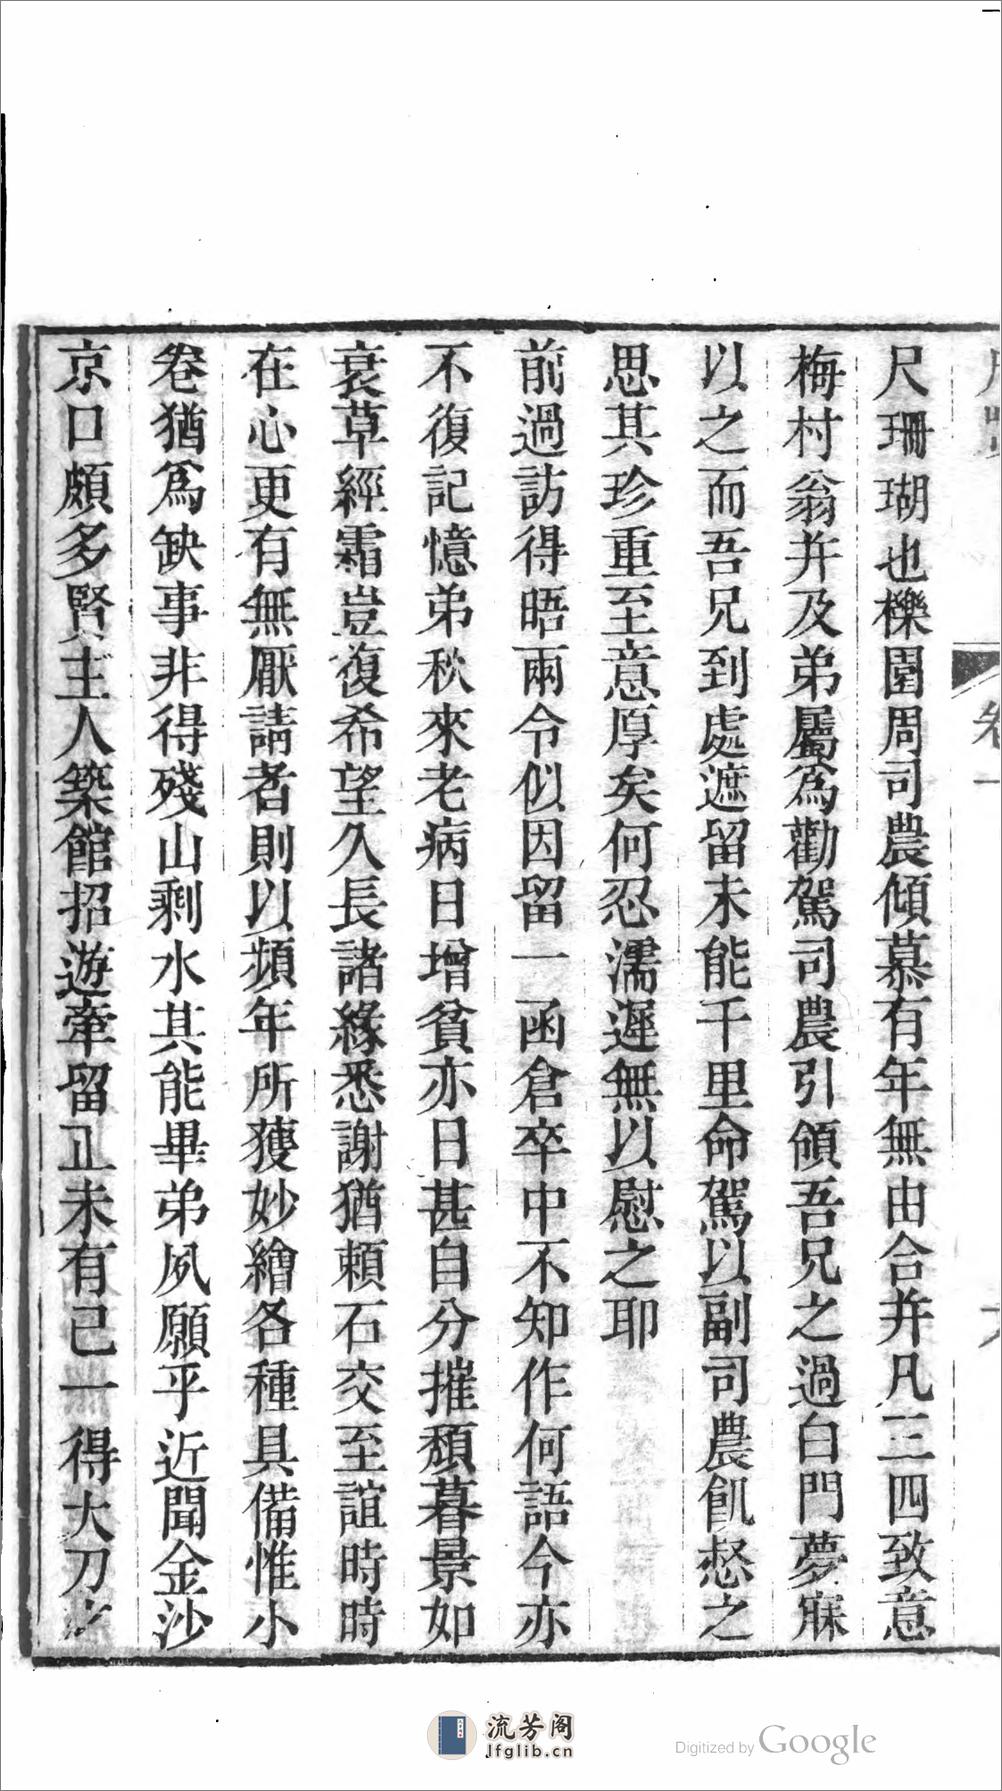 尺珊瑚也櫟園周司農傾慕有年無由合并凡三四致意
梅村翁并及弟屬爲勸駕司農引領吾兄之過白門夢寐
以之而吾兄到處遮留未能千里命駕以副司農飢惄之
思其珍重至意厚矣何忍濡遲無以慰之耶
前過訪得晤兩令似因留一函倉卒中不知作何語今亦
不復記憶弟秋來老病日增貧亦日甚自分摧頹暮景如
衰草經霜豈復希望久長諸緣悉謝猶賴石交至誼時時
在心更有無厭請者則以頻年所獲妙繪各種具備惟小
卷猶爲缺事非得殘山剩水其能畢弟夙願乎近聞金沙
京口頗多賢主人築館招遊牽留正未有已一得大刀
卷一
流芳阁
lfglib.cn
Digitized by Google